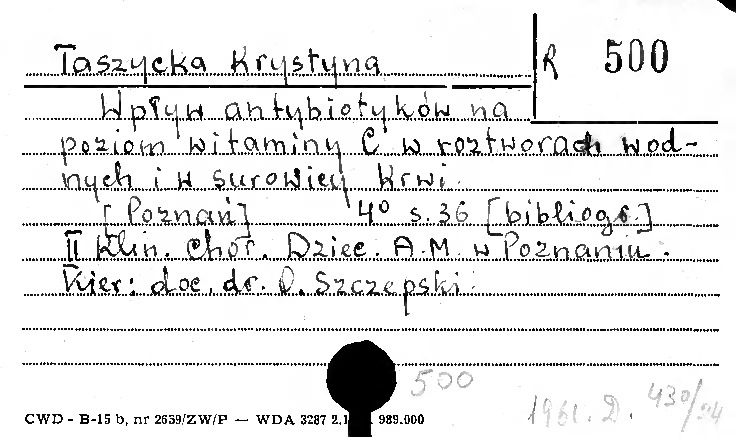 Taszycka Krystyna
R 500
Wpływ antybiotyków na
poziom witaminy C w roztworach wod-
nych i w surowicy krwi.
[Poznań] 4° s. 36 [bibliogr.]
II Klin. Chor. Dziec. A.M. w Poznaniu.
Kier: doc. dr. O. Szczepski.
500
1961. D. 430/24
CWD - B-15 b, nr 2639/ZW/P — WDA 3287 2. 989.000